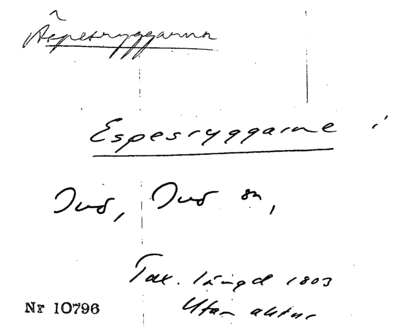 Äspesryggarna
Espesryggarne i
Ivö, Ivö sn,
Tax. längd 1803
Utan aktnr
Nr 10796